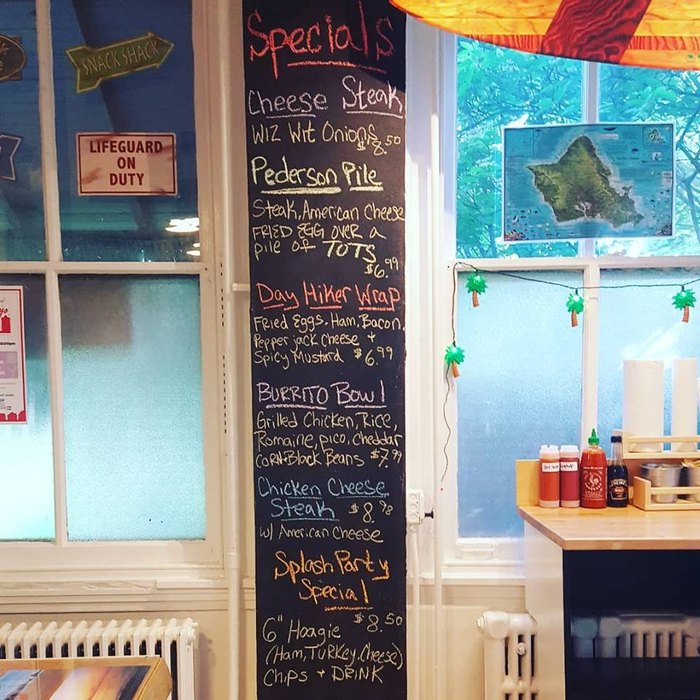 SNACK SHACK
LIFEGUARD
ON
DUTY
Specials
Cheese Steak
WIZ Wit Onions
$8.50
Pederson Pile
Steak, American Cheese
FRIED EGG OVER a
pile of TOTS
$6.99
Day Hiker Wrap
Fried Eggs, Ham, Bacon,
Pepper jack cheese +
Spicy Mustard $6.99
BURRITO Bowl
Grilled Chicken, Rice,
Romaine, pico, cheddar
CORN+Black Beans $7.99
Chicken Cheese
Steak $8.98
w/ American Cheese
Splash Party
Special
6" Hoagie $8.50
(Ham, TURKEY, Cheese)
Chips + DRINK